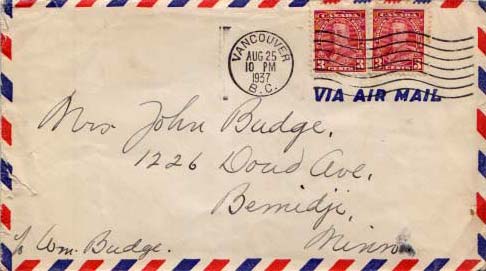 VANCOUVER
AUG 25
10 PM
1937
B.C.
CANADA CANADA
3 CENTS 3 3 CENTS 3
VIA AIR MAIL
Mrs John Budge,
1226 Doud Ave,
Bemidji,
Minn
℅ Wm. Budge.